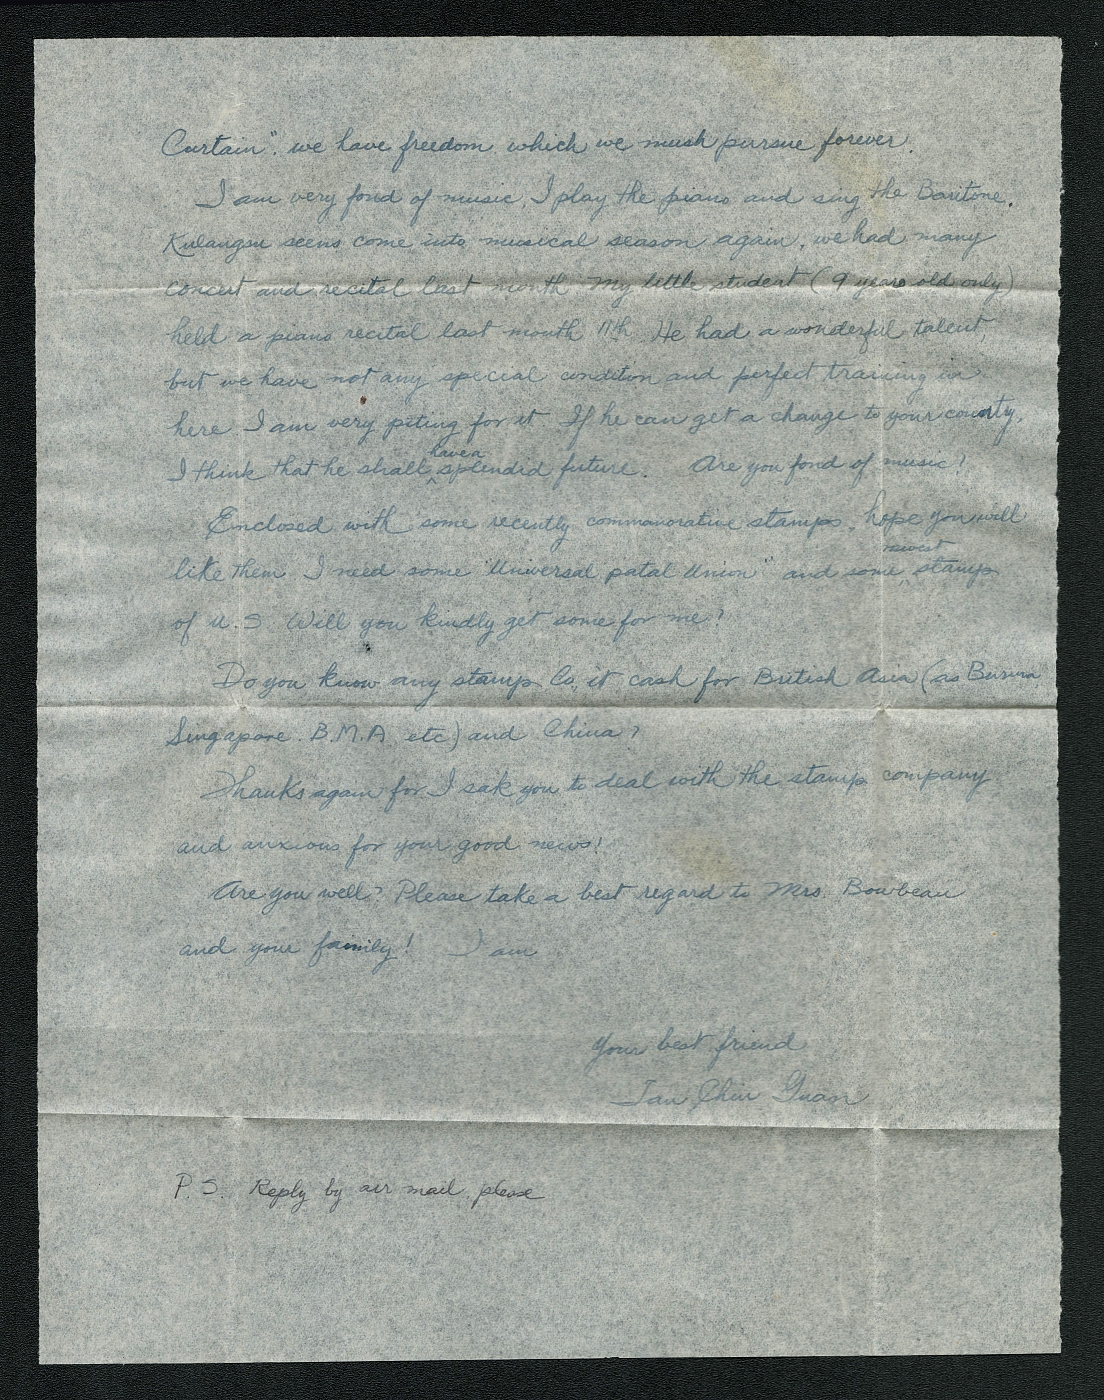 Curtain". we have freedom which we mush pursue forever.
I am very fond of music, I play the piano and sing the Baritone.
Kulangsu seens come into musical season again, we had many
concert and recital last month My little student (9 years old only)
held a piano recital last month 11th. He had a wonderful talent,
but we have not any special conditon and perfect training in
here I am very piting for it If he can get a change to your county,
I think that he shall have a splendid future. Are you fond of music?
Enclosed with some recently commanorative stamps, hope you will
like them I need some "Universal patal Union" and some newest stamps
of U.S. Will you kindly get some for me?
Do you know any stamps Co. it cash for British Asia (as Burma
Singapore. B.M.A. etc) and China?
Thanks again for I sak you to deal with the stamp company
and anxious for your good news!
Are you well? Please take a best regard to Mrs. Bowbeau
and your family! I am
Your best friend
Tan Chin Guan
P.S. Reply by air mail please